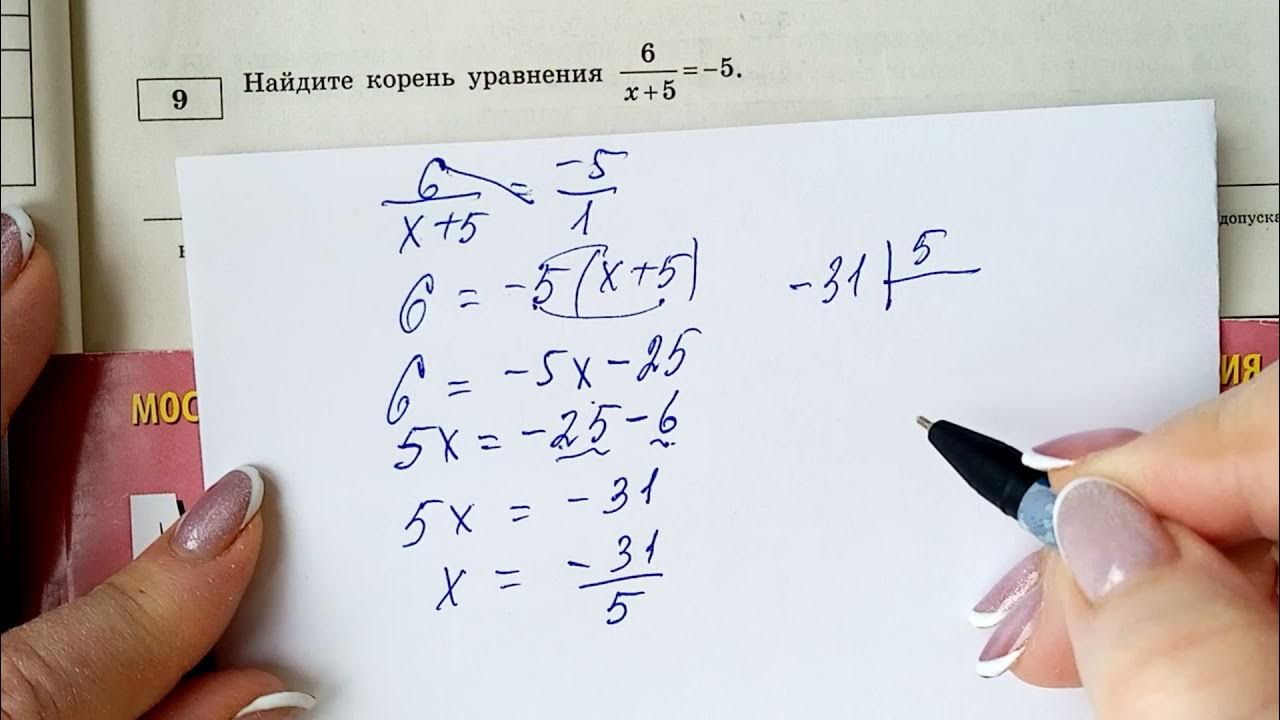 9 Найдите корень уравнения 6/(x+5) = -5.
6/(x+5) = -5/1
6 = -5(x+5)
-31 | 5
6 = -5x - 25
5x = -25 - 6
5x = -31
x = -31/5
МОС
ИЯ
допуска